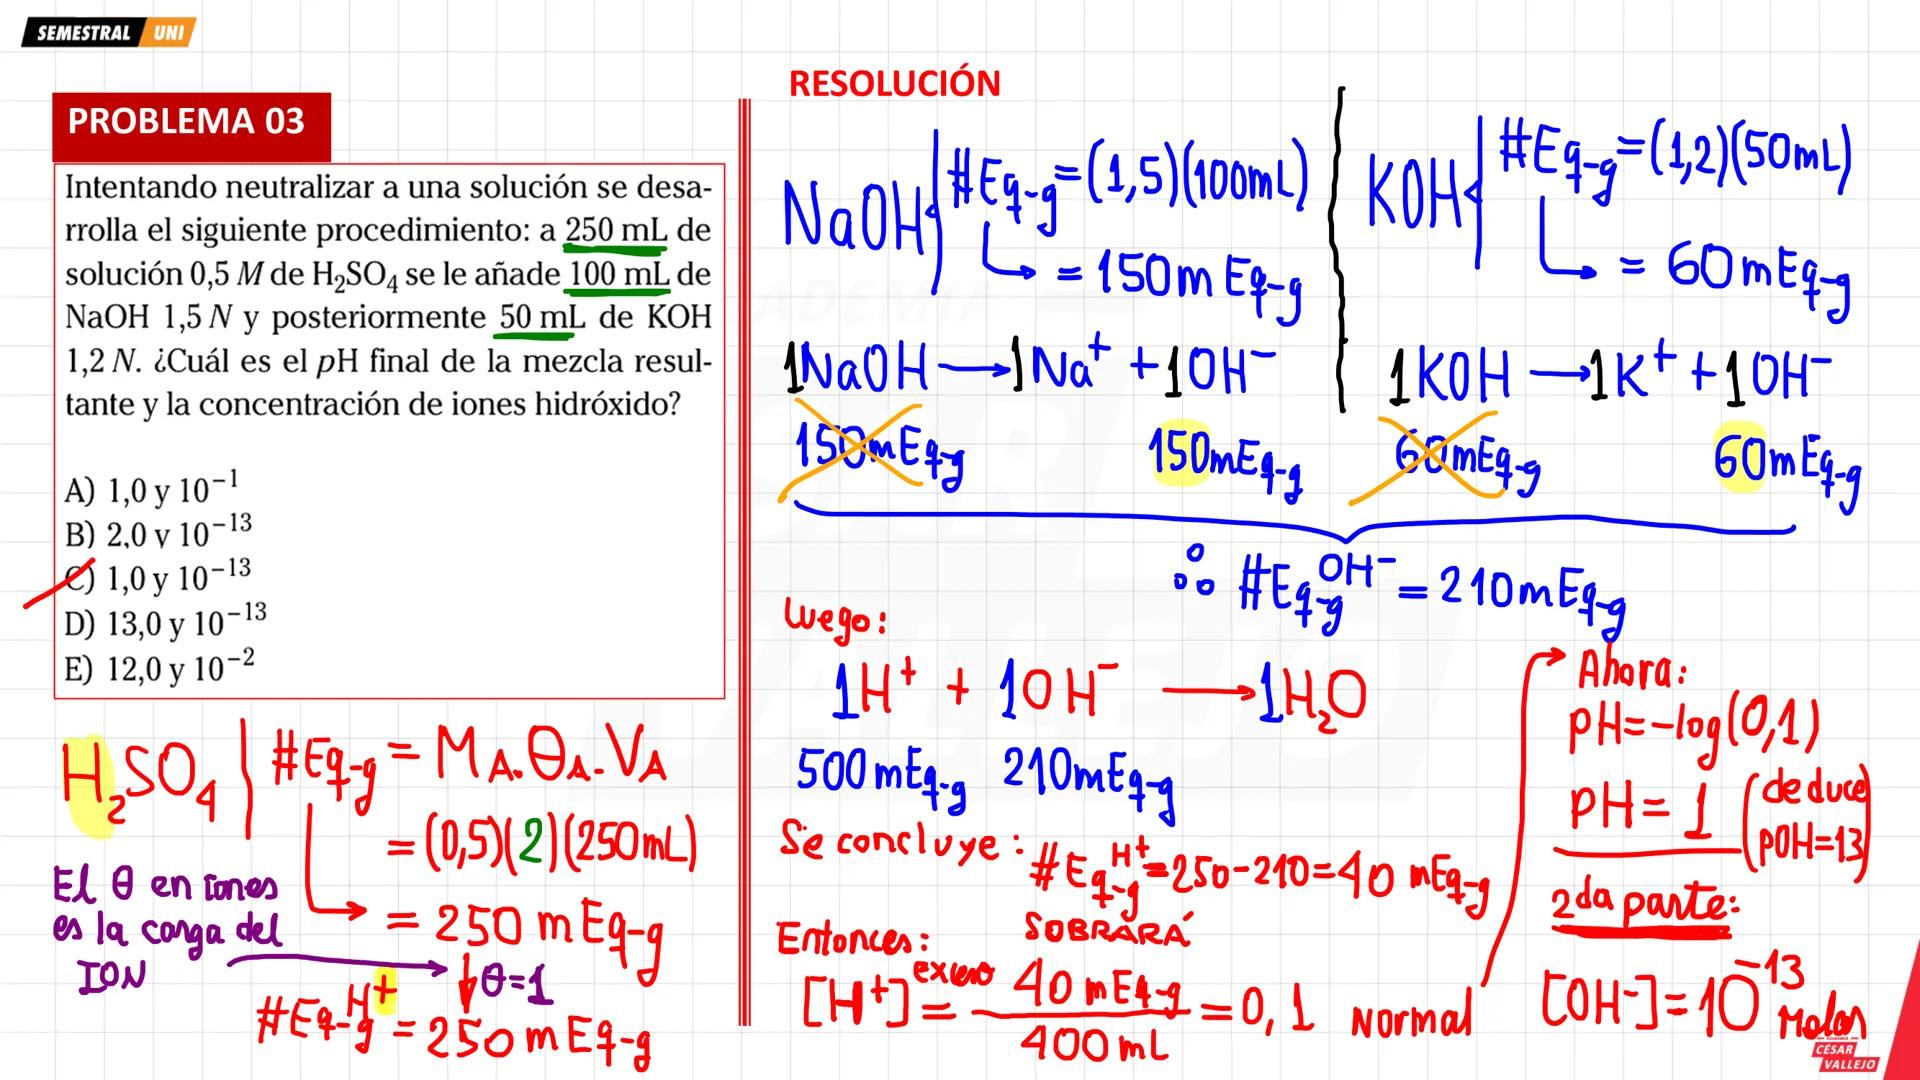 SEMESTRAL UNI
PROBLEMA 03
Intentando neutralizar a una solución se desa-
rrolla el siguiente procedimiento: a 250 mL de
solución 0,5 M de H₂SO₄ se le añade 100 mL de
NaOH 1,5 N y posteriormente 50 mL de KOH
1,2 N. ¿Cuál es el pH final de la mezcla resul-
tante y la concentración de iones hidróxido?
A) 1,0 y 10⁻¹
B) 2,0 y 10⁻¹³
C) 1,0 y 10⁻¹³
D) 13,0 y 10⁻¹³
E) 12,0 y 10⁻²
H₂SO₄ #Eq-g = M_A.θ_A.V_A
= (0,5)(2)(250mL)
= 250 mEq-g
El θ en iones
es la carga del
ION
θ=1
#Eq-g H⁺ = 250 mEq-g
RESOLUCIÓN
NaOH #Eq-g = (1,5)(100mL)
= 150m Eq-g
1NaOH → 1Na⁺ + 1OH⁻
150mEq-g 150mEq-g
KOH #Eq-g = (1,2)(50mL)
= 60mEq-g
1KOH → 1K⁺ + 1OH⁻
60mEq-g 60mEq-g
∴ #Eq-g OH⁻ = 210mEq-g
Luego:
1H⁺ + 1OH⁻ → 1H₂O
500mEq-g 210mEq-g
Se concluye: #Eq-g H⁺ = 250-210=40 mEq-g
SOBRARÁ
Entonces:
[H⁺] exceso = 40 mEq-g / 400mL = 0,1 Normal
Ahora:
pH=-log(0,1)
pH= 1 (deduce
pOH=13)
2da parte:
[OH⁻]=10⁻¹³ Molar
ACADEMIA
CÉSAR
VALLEJO